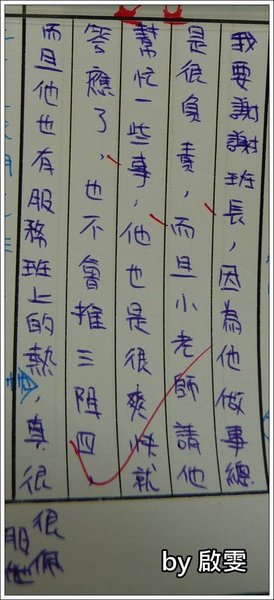 我要謝謝班長，因為他做事總
是很負責，而且小老師請他
幫忙一些事，他也是很爽快就
答應了，也不會推三阻四，
而且他也有服務班上的熱，真很
很佩
服他
by 啟雯